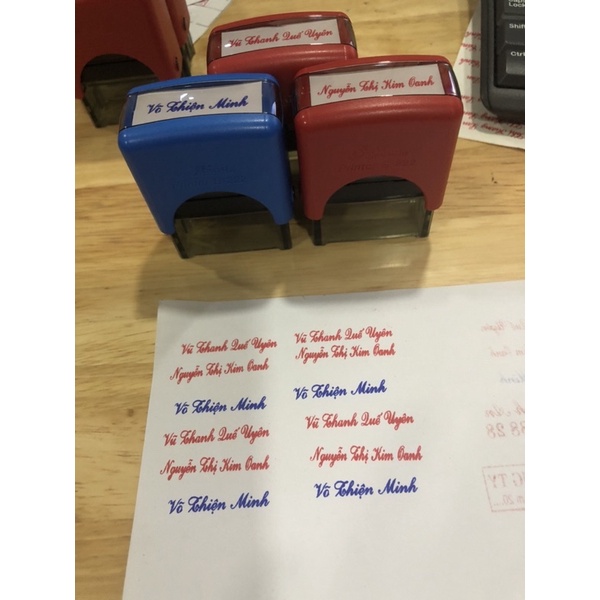 Vũ Thanh Quế Uyên
Võ Thiện Minh
Nguyễn Thị Kim Oanh
Shift
Ctrl
Vũ Thanh Quế Uyên
Nguyễn Thị Kim Oanh
Võ Thiện Minh
Vũ Thanh Quế Uyên
Nguyễn Thị Kim Oanh
Võ Thiện Minh
Vũ Thanh Quế Uyên
Nguyễn Thị Kim Oanh
Võ Thiện Minh
Vũ Thanh Quế Uyên
Nguyễn Thị Kim Oanh
Võ Thiện Minh
88 28
G TY